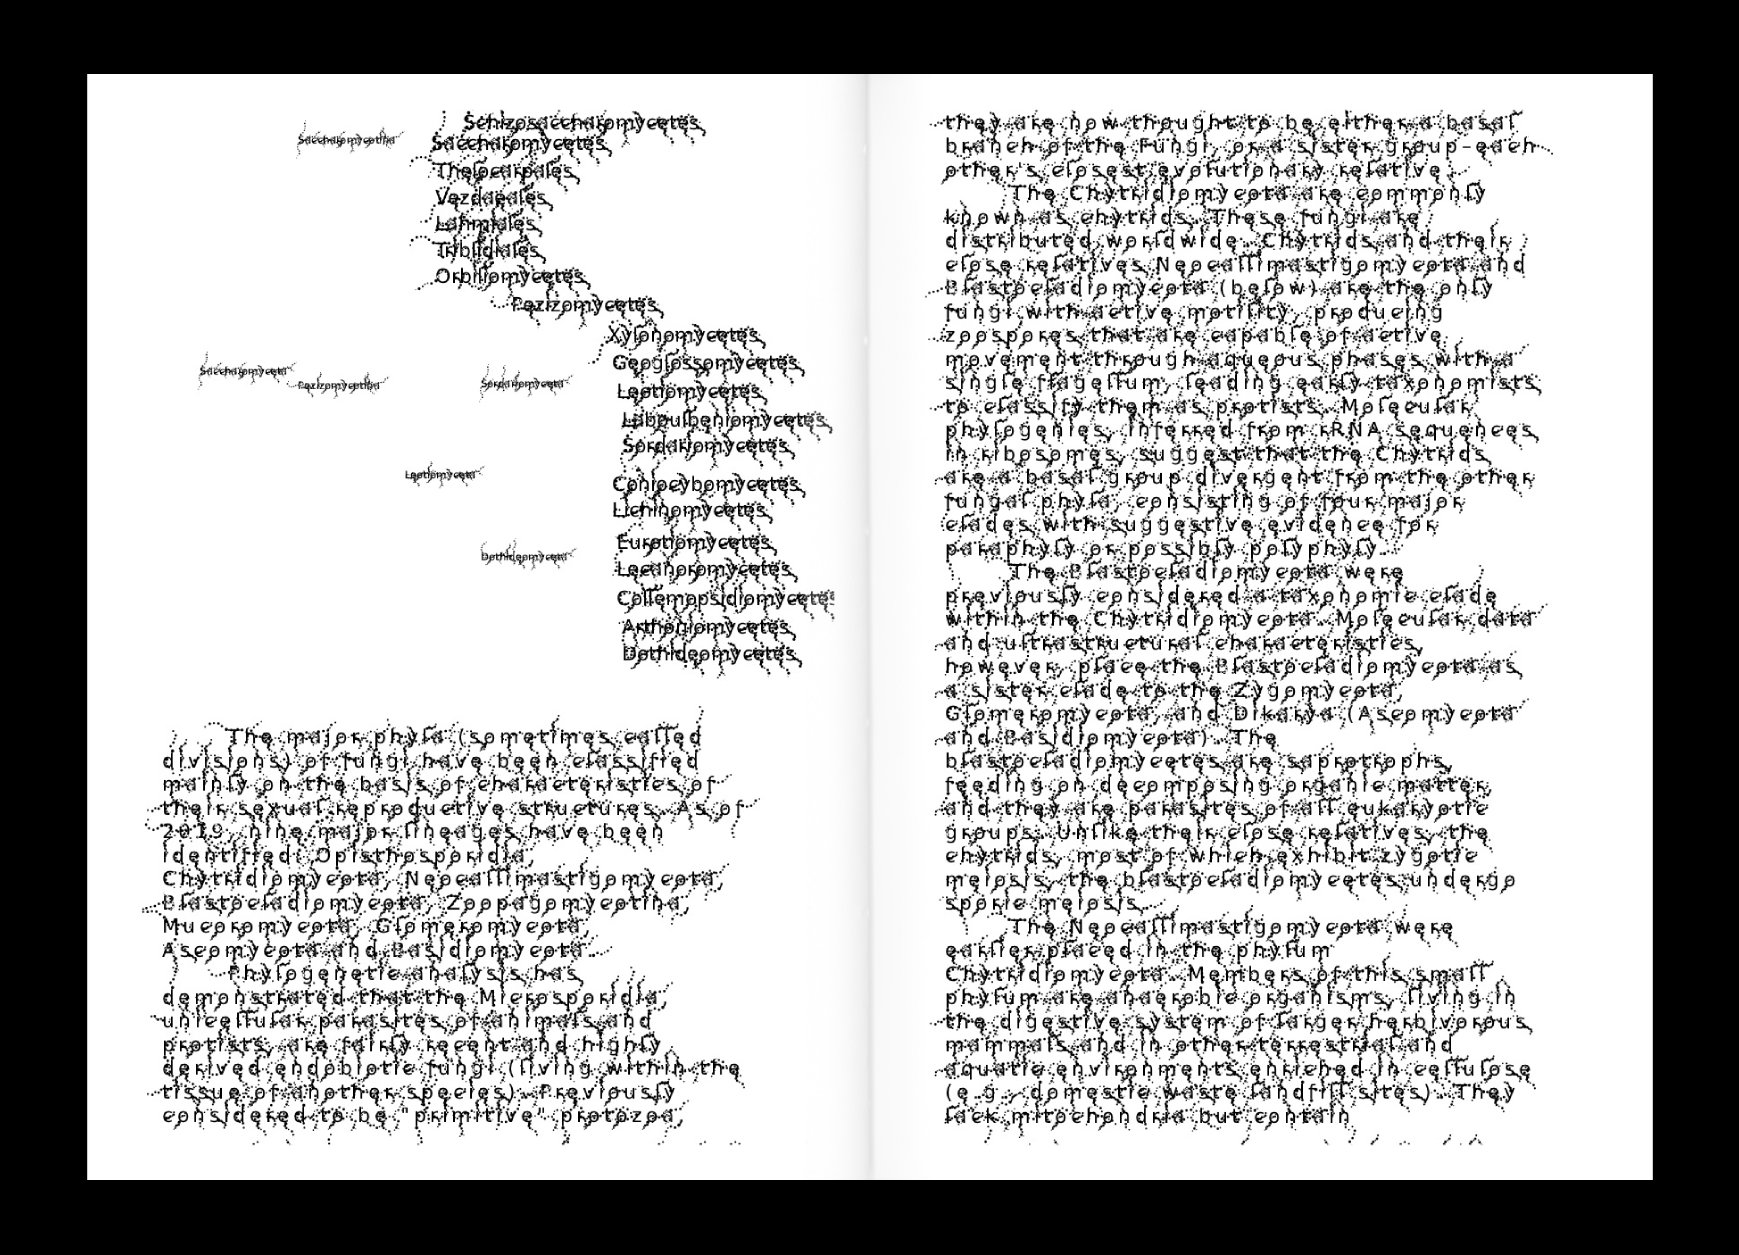 Schizosaccharomycetes
Saccharomycotina
Saccharomycetes
Thelocarpales
Vezdaeales
Lahmiales
Triblidiales
Orbiliomycetes
Pezizomycetes
Xylonomycetes
Geoglossomycetes
Saccharomyceta
Pezizomycotina
Sordariomyceta
Leotiomycetes
Laboulbeniomycetes
Sordariomycetes
Leotiomyceta
Coniocybomycetes
Lichinomycetes
Eurotiomycetes
Dothideomyceta
Lecanoromycetes
Collemopsidiomycetes
Arthoniomycetes
Dothideomycetes
The major phyla (sometimes called
divisions) of fungi have been classified
mainly on the basis of characteristics of
their sexual reproductive structures. As of
2019, nine major lineages have been
identified: Opisthosporidia,
Chytridiomycota, Neocallimastigomycota,
Blastocladiomycota, Zoopagomycotina,
Mucoromycota, Glomeromycota,
Ascomycota and Basidiomycota.
Phylogenetic analysis has
demonstrated that the Microsporidia,
unicellular parasites of animals and
protists, are fairly recent and highly
derived endobiotic fungi (living within the
tissue of another species). Previously
considered to be "primitive" protozoa,
they are now thought to be either a basal
branch of the Fungi, or a sister group–each
other's closest evolutionary relative.
The Chytridiomycota are commonly
known as chytrids. These fungi are
distributed worldwide. Chytrids and their
close relatives Neocallimastigomycota and
Blastocladiomycota (below) are the only
fungi with active motility, producing
zoospores that are capable of active
movement through aqueous phases with a
single flagellum, leading early taxonomists
to classify them as protists. Molecular
phylogenies, inferred from rRNA sequences
in ribosomes, suggest that the Chytrids
are a basal group divergent from the other
fungal phyla, consisting of four major
clades with suggestive evidence for
paraphyly or possibly polyphyly.
The Blastocladiomycota were
previously considered a taxonomic clade
within the Chytridiomycota. Molecular data
and ultrastructural characteristics,
however, place the Blastocladiomycota as
a sister clade to the Zygomycota,
Glomeromycota, and Dikarya (Ascomycota
and Basidiomycota). The
blastocladiomycetes are saprotrophs,
feeding on decomposing organic matter,
and they are parasites of all eukaryotic
groups. Unlike their close relatives, the
chytrids, most of which exhibit zygotic
meiosis, the blastocladiomycetes undergo
sporic meiosis.
The Neocallimastigomycota were
earlier placed in the phylum
Chytridiomycota. Members of this small
phylum are anaerobic organisms, living in
the digestive system of larger herbivorous
mammals and in other terrestrial and
aquatic environments enriched in cellulose
(e.g., domestic waste landfill sites). They
lack mitochondria but contain